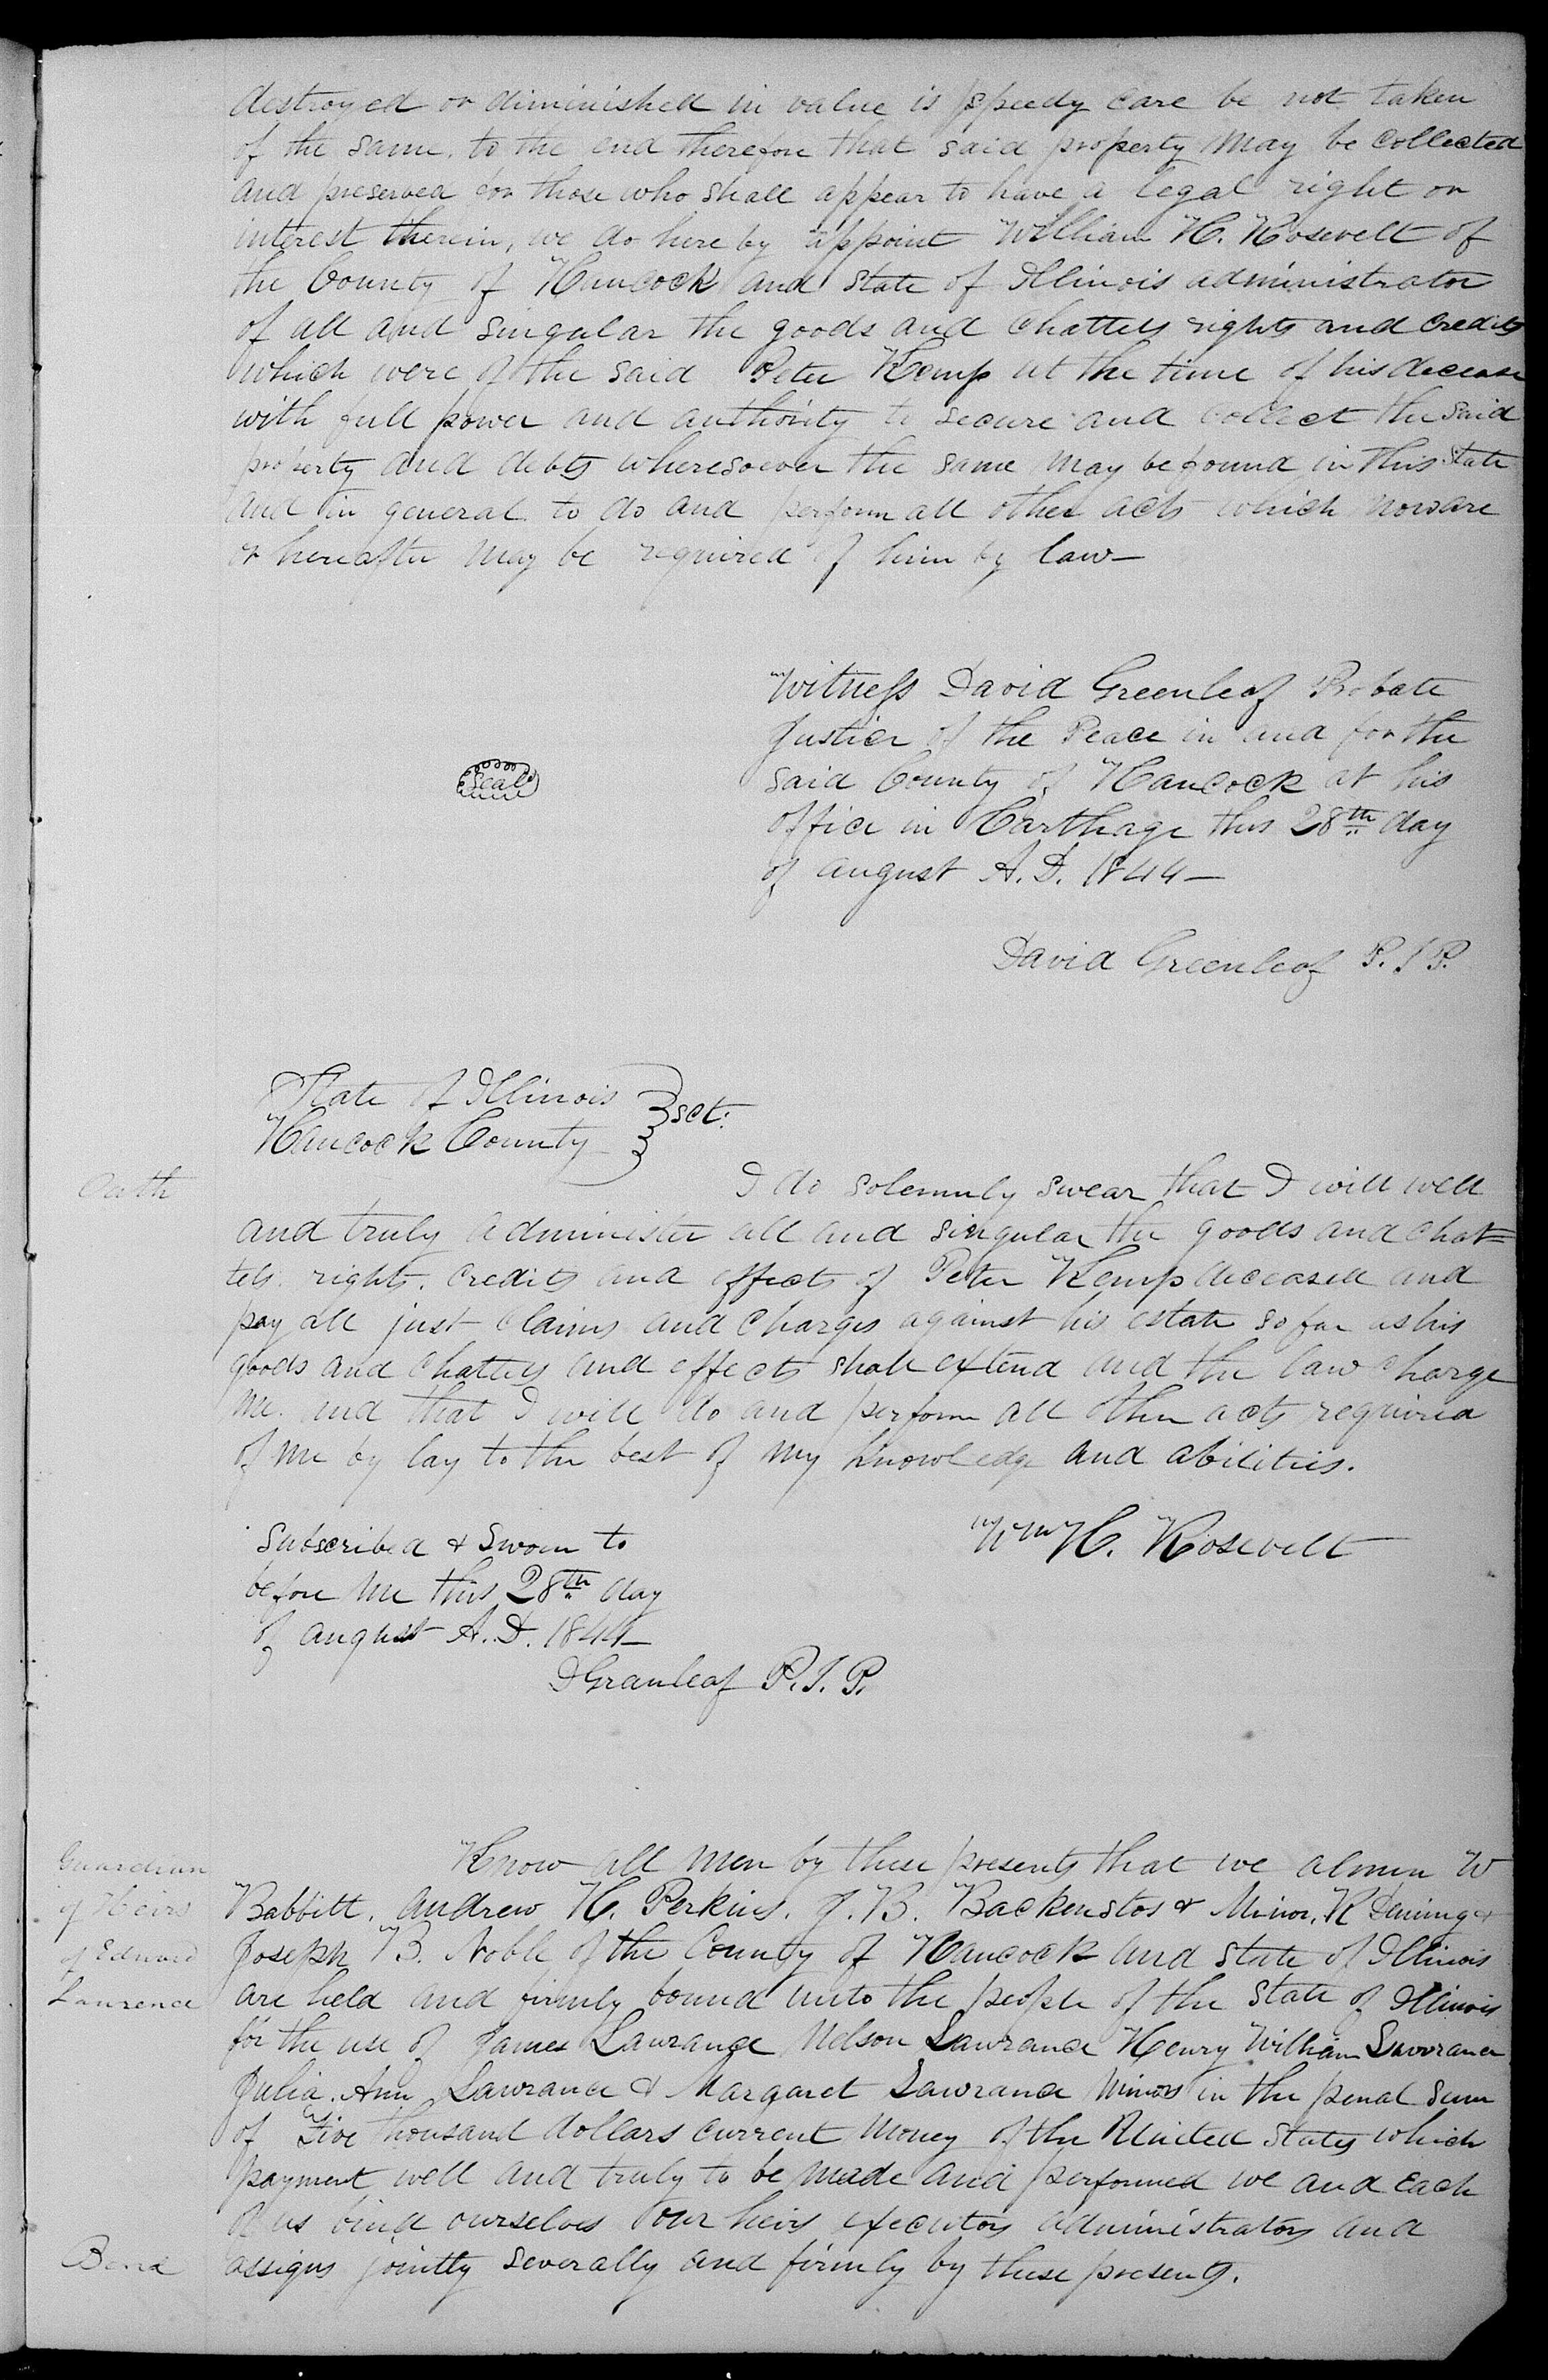 destroyed or diminished in value is speedy care be not taken
of the same. to the end therefore that said property may be collected
and preserved for those who shall appear to have a legal right or
interest therein, we do here by appoint William H. Rosevelt of
the County of Hancock and State of Illinois administrator
of all and singular the goods and chattels rights and credits
which were of the said Peter Kemp at the time of his decease
with full power and authority to secure and collect the said
property and debts wheresoever the same may be found in this State
and in general to do and perform all other acts which now are
or hereafter may be required of him by law—
Witness David Greenleaf Probate
Justice of the Peace in and for the
said County of Hancock at his
office in Carthage this 28th day
of august A.D. 1844—
Seal
David Greenleaf P.J.P.
State of Illinois
Hancock County } sct.
Oath
I do solemnly swear that I will well
and truly administer all and singular the goods and chat=
tels. rights. credits and effects of Peter Kemp deceased and
pay all just claims and charges against his estate so far as his
goods and chattels and effects shall extend and the law charge
me. and that I will do and perform all other acts required
of me by lay to the best of my knowledge and abilities.
Wm H. Rosevelt
Subscribed & Sworn to
before me this 28th day
of august A.D. 1844—
D Greanleaf P.J.P.
Guardian
of Heirs
of Edward
Laurence
Know all men by these presents that we almon W
Babbitt. Andrew H. Perkins. J.B. Backenstos & Minor. R Deming &
Joseph B. Noble of the County of Hancock and State of Illinois
are held and firmly bound unto the people of the State of Illinois
for the use of James Lawrance Nelson Lawrance Henry William Lawrance
Julia. Ann Lawrance & Margaret Lawrance minors in the penal sum
of Five thousand dollars current money of the United States which
payment well and truly to be made and performed we and each
of us bind ourselves our heirs executors administrators and
Bond
assigns jointly severally and firmly by these presents.